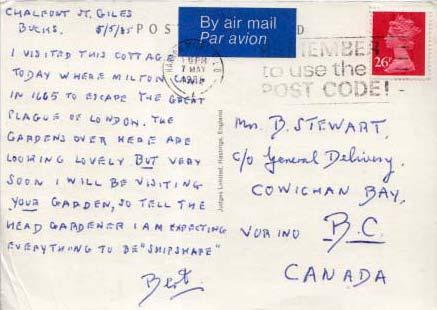 CHALFONT ST. GILES
BUCKS. 5/5/85
POST D
By air mail
Par avion
REMEMBER
to use the
POST CODE!
6 PM
7 MAY
26P
I VISITED THIS COTTAGE
TODAY WHERE MILTON CAME
IN 1665 TO ESCAPE THE GREAT
PLAGUE OF LONDON. THE
GARDENS OVER HERE ARE
LOOKING LOVELY BUT VERY
SOON I WILL BE VISITING
YOUR GARDEN, SO TELL THE
HEAD GARDENER I AM EXPECTING
EVERYTHING TO BE "SHIPSHAPE"
Bert.
Judges Limited, Hastings, England
Mrs B. STEWART,
c/o General Delivery,
COWICHAN BAY,
VOR INO B.C.
CANADA